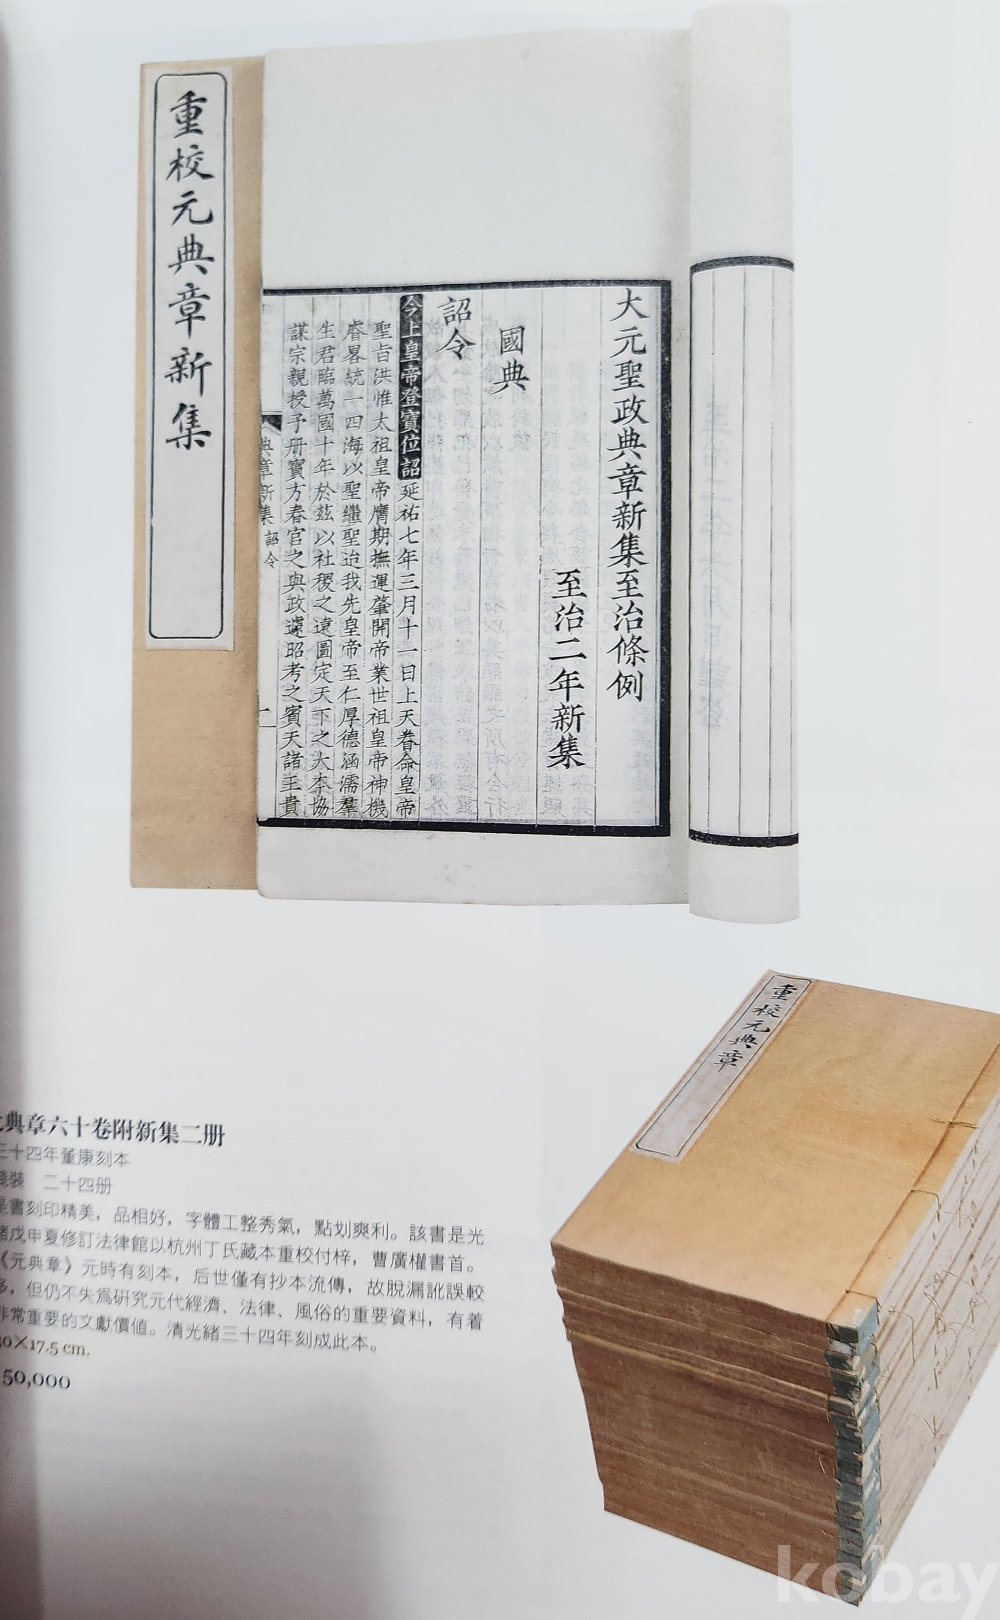 重校元典章新集
大元聖政典章新集至治條例
至治二年新集
國典
詔令
今上皇帝登寶位詔延祐七年三月十一日上天眷命皇帝
聖旨洪惟太祖皇帝膺期撫運肇開帝業世祖皇帝神機
睿畧統一四海以聖繼聖迨我先皇帝至仁厚德涵濡羣
生君臨萬國十年於茲以社稷之遠圖定天下之大本協
謀宗親授予册寶方春官之與政遽昭考之賓天諸王貴
典章新集 詔令 一
重校元典章
典章六十卷附新集二册
三十四年董康刻本
綫裝 二十四册
是書刻印精美，品相好，字體工整秀氣，點划爽利。該書是光
緒戊申夏修訂法律館以杭州丁氏藏本重校付梓，曹廣權書首。
《元典章》元時有刻本，后世僅有抄本流傳，故脫漏訛誤較
多，但仍不失爲研究元代經濟、法律、風俗的重要資料，有着
非常重要的文獻價值。清光緒三十四年刻成此本。
30×17.5 cm.
50,000
kobay